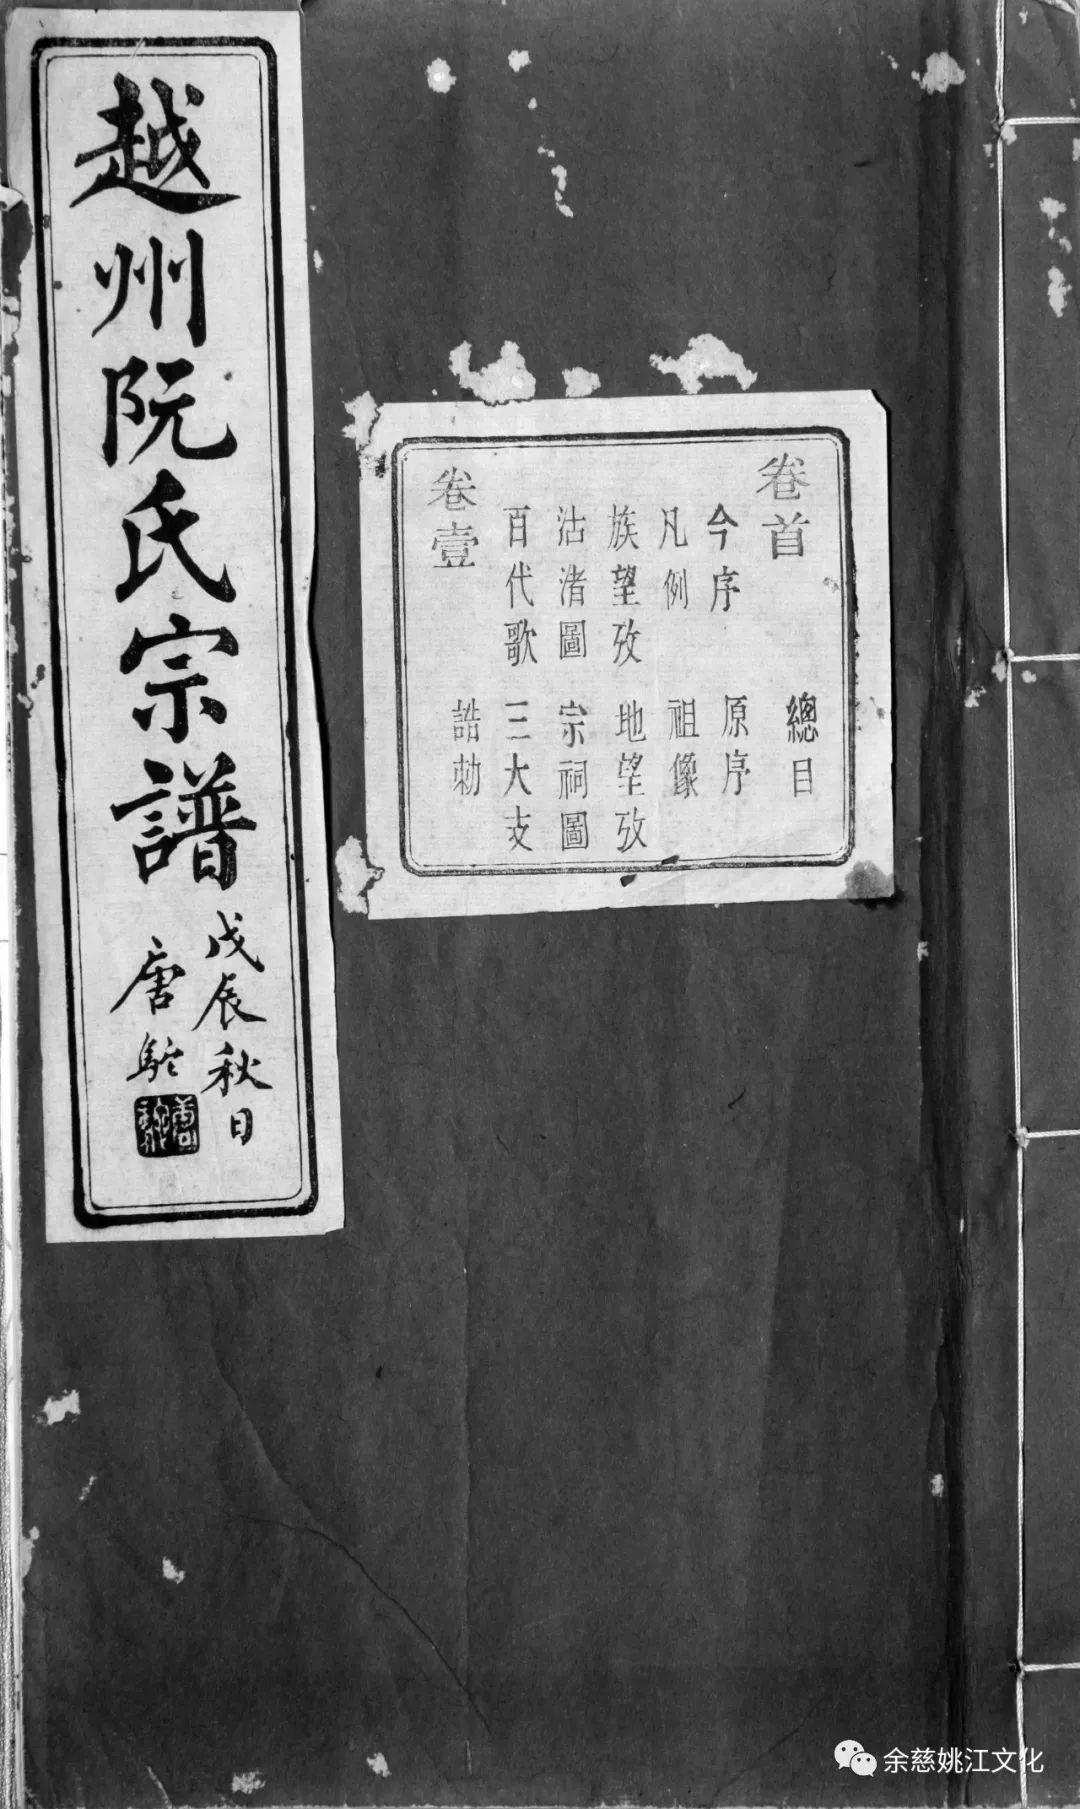 越州阮氏宗譜
戊辰秋日
唐駝
唐駝
卷首 總目
今序 原序
凡例 祖像
族望攷 地望攷
沽渚圖 宗祠圖
百代歌 三大支
卷壹 誥勅
余慈姚江文化